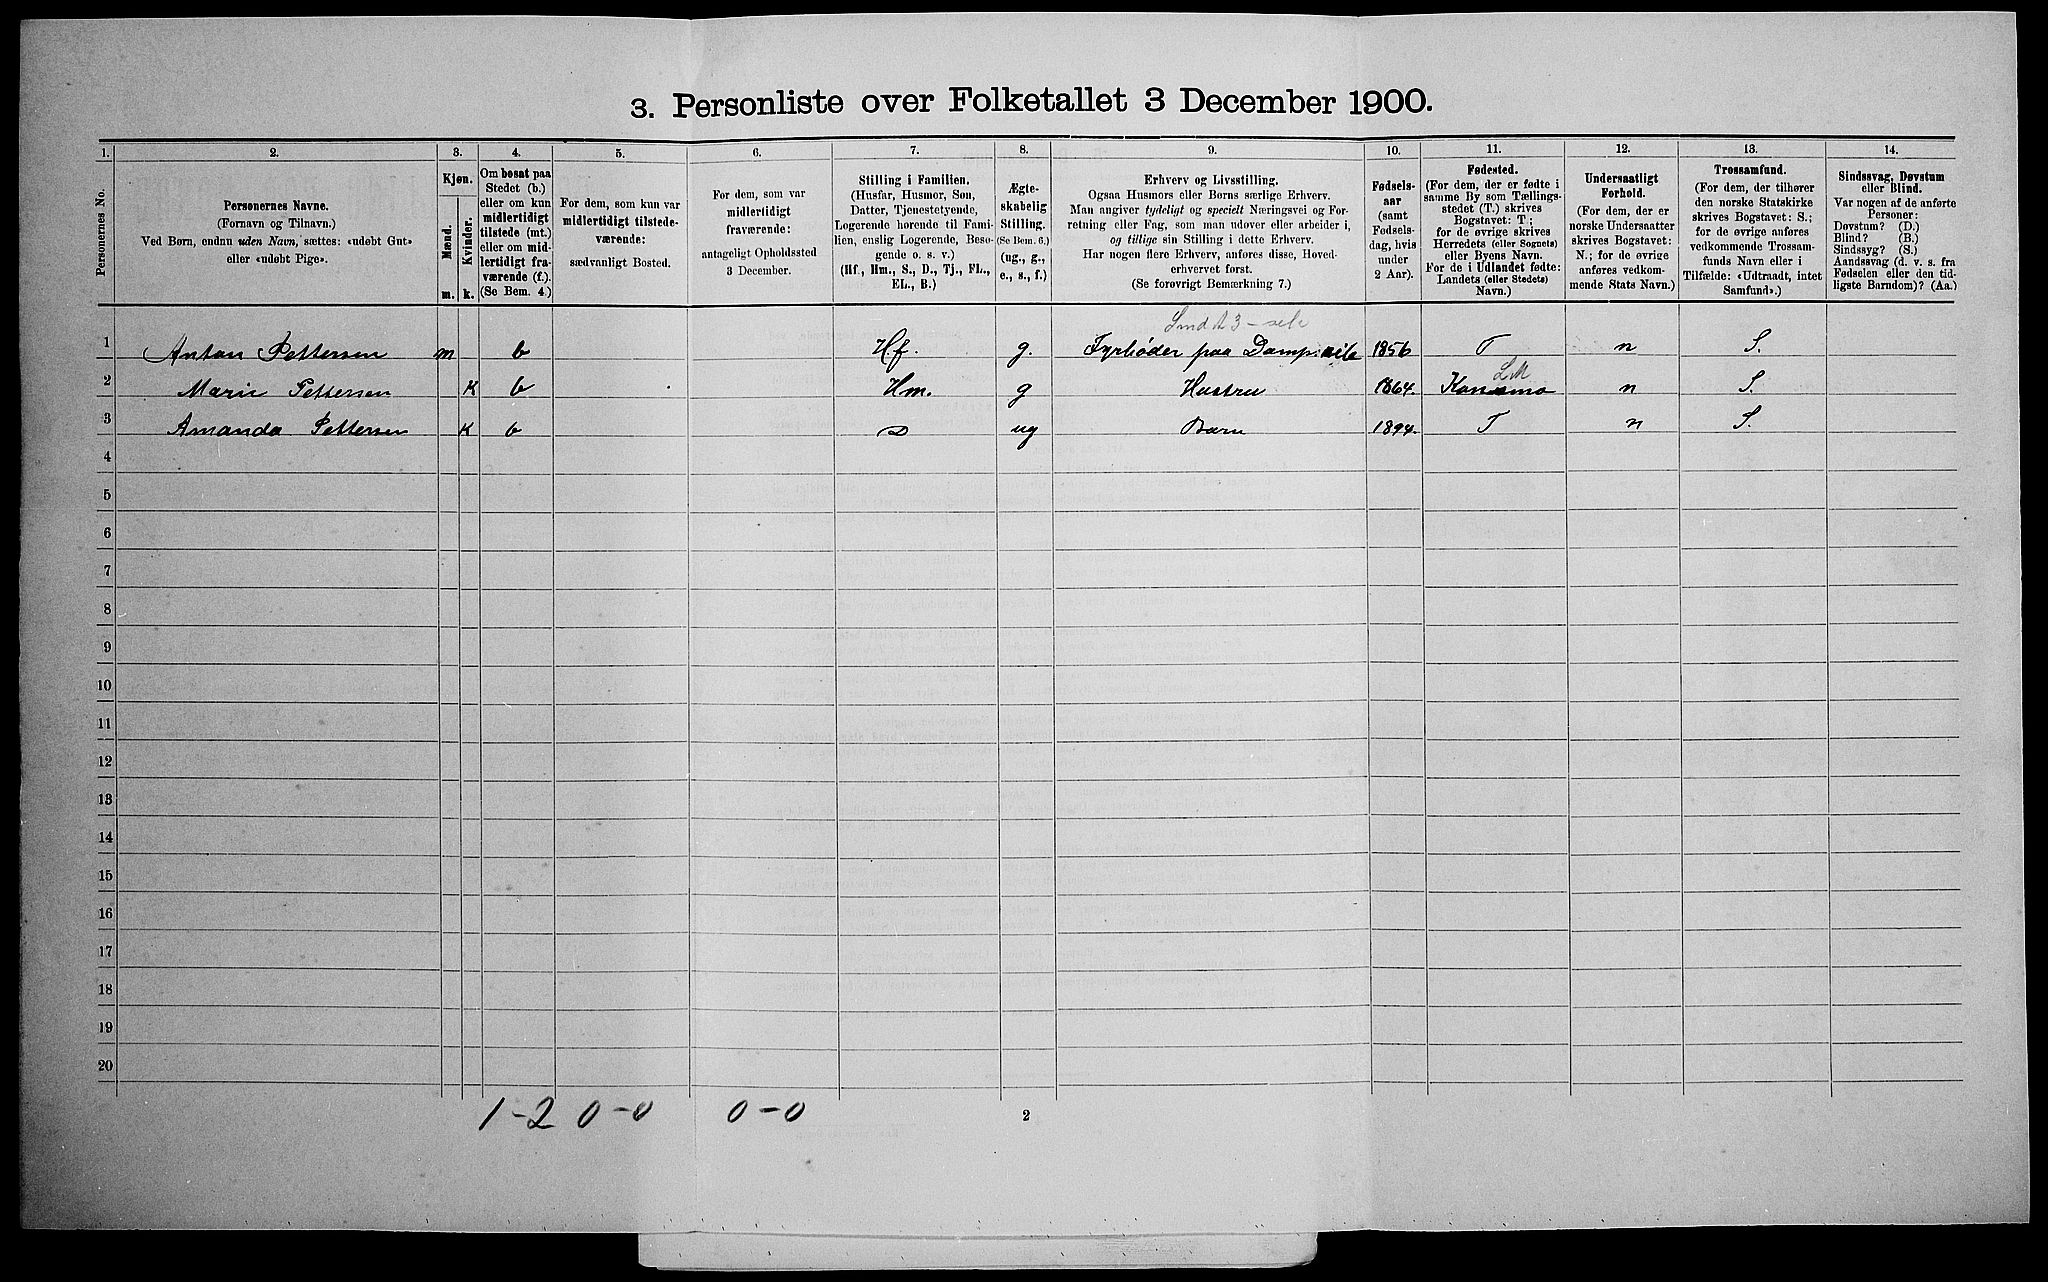 3. Personliste over Folketallet 3 December 1900.
1. 2. 3. 4. 5. 6. 7. 8. 9. 10. 11. 12. 13. 14.
Personernes No.
Personernes Navne.
(Fornavn og Tilnavn.)
Ved Børn, endnu uden Navn, sættes: «udøbt Gut»
eller «udøbt Pige».
Kjøn.
Mænd.
Kvinder.
m. k.
Om bosat paa
Stedet (b.)
eller om kun
midlertidigt
tilstede (mt.)
eller om mid-
lertidigt fra-
værende (f.).
(Se Bem. 4.)
For dem, som kun var
midlertidigt tilstede-
værende:
sædvanligt Bosted.
For dem, som var
midlertidigt
fraværende:
antageligt Opholdssted
3 December.
Stilling i Familien.
(Husfar, Husmor, Søn,
Datter, Tjenestetyende,
Logerende hørende til Fami-
lien, enslig Logerende, Besø-
gende o. s. v.)
(Hf., Hm., S., D., Tj., FL.,
EL., B.)
Ægte-
skabelig
Stilling.
(Se Bem. 6.)
(ug., g.,
e., s., f.)
Erhverv og Livsstilling.
Ogsaa Husmors eller Børns særlige Erhverv.
Man angiver tydeligt og specielt Næringsvei og For-
retning eller Fag, som man udøver eller arbeider i,
og tillige sin Stilling i dette Erhverv.
Har nogen flere Erhverv, anføres disse, Hoved-
erhvervet først.
(Se forøvrigt Bemærkning 7.)
Fødsels-
aar
(samt
Fødsels-
dag, hvis
under
2 Aar).
Fødested.
(For dem, der er fødte i
samme By som Tællings-
stedet (T.) skrives
Bogstavet: T;
for de øvrige skrives
Herredets (eller Sognets)
eller Byens Navn.
For de i Udlandet fødte:
Landets (eller Stedets)
Navn.)
Undersaatligt
Forhold.
(For dem, der er
norske Undersaatter
skrives Bogstavet:
N.; for de øvrige
anføres vedkom-
mende Stats Navn.)
Trossamfund.
(For dem, der tilhører
den norske Statskirke
skrives Bogstavet: S.;
for de øvrige anføres
vedkommende Trossam-
funds Navn eller i
Tilfælde: «Udtraadt, intet
Samfund».)
Sindssvag, Døvstum
eller Blind.
Var nogen af de anførte
Personer:
Døvstum? (D.)
Blind? (B.)
Sindssyg? (S.)
Aandssvag (d. v. s. fra
Fødselen eller den tid-
ligste Barndom)? (Aa.)
1 Anton Pettersen m b Hf. g. Fyrbøder paa 1856 T n S.
2 Marie Pettersen K b Hm. g Hustru 1864. n S.
3 Amanda Pettersen K b D ug Barn 1894. T n S.
4
5
6
7
8
9
10
11
12
13
14
15
16
17
18
19
20
1-2 0-0 0-0
2